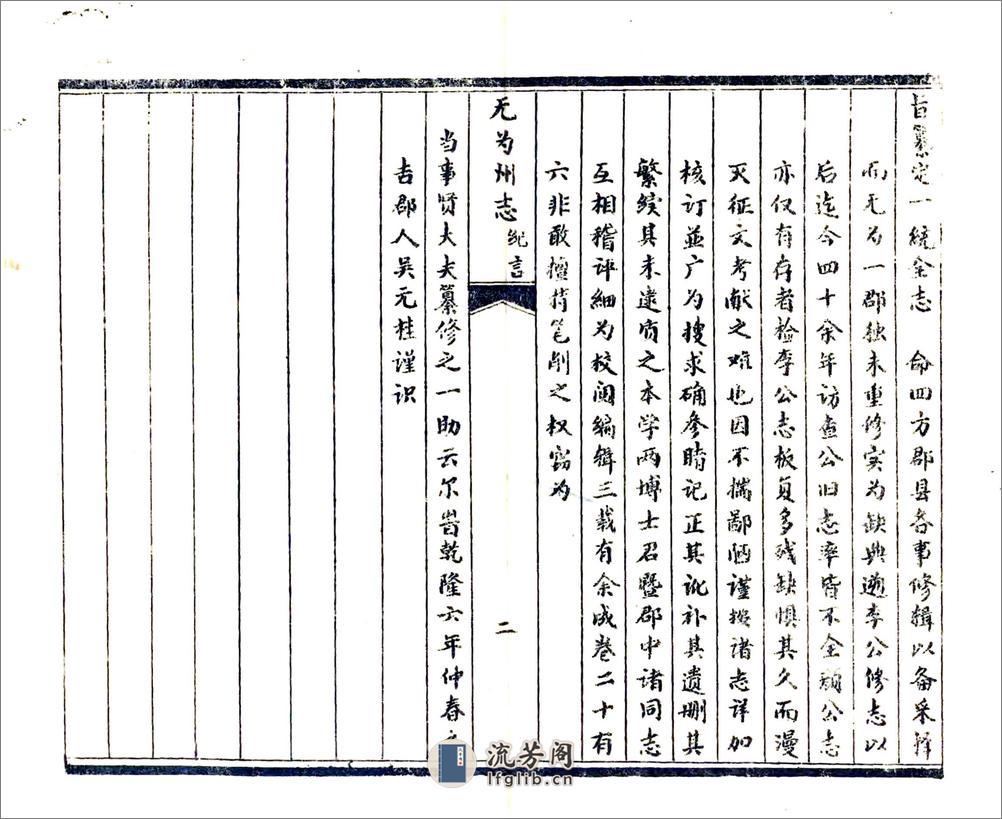 旨纂定一统全志 命四方郡县各事修辑以备采择
而无为一郡独未重修实为缺典遡李公修志以
后迄今四十余年访查公旧志率皆不全颜公志
亦仅有存者检李公志板复多残缺惧其久而漫
灭征文考献之难也因不揣鄙陋谨搜诸志详加
核订並广为搜求确参时记正其讹补其遗删其
繁续其未逮质之本学两博士君暨郡中诸同志
互相稽评细为校阅编辑三载有余成卷二十有
六非敢擅操笔削之权窃为
无为州志 纪言
二
当事贤大夫纂修之一助云尔旹乾隆六年仲春之
吉郡人吴元桂谨识
流芳阁
lfglib.cn